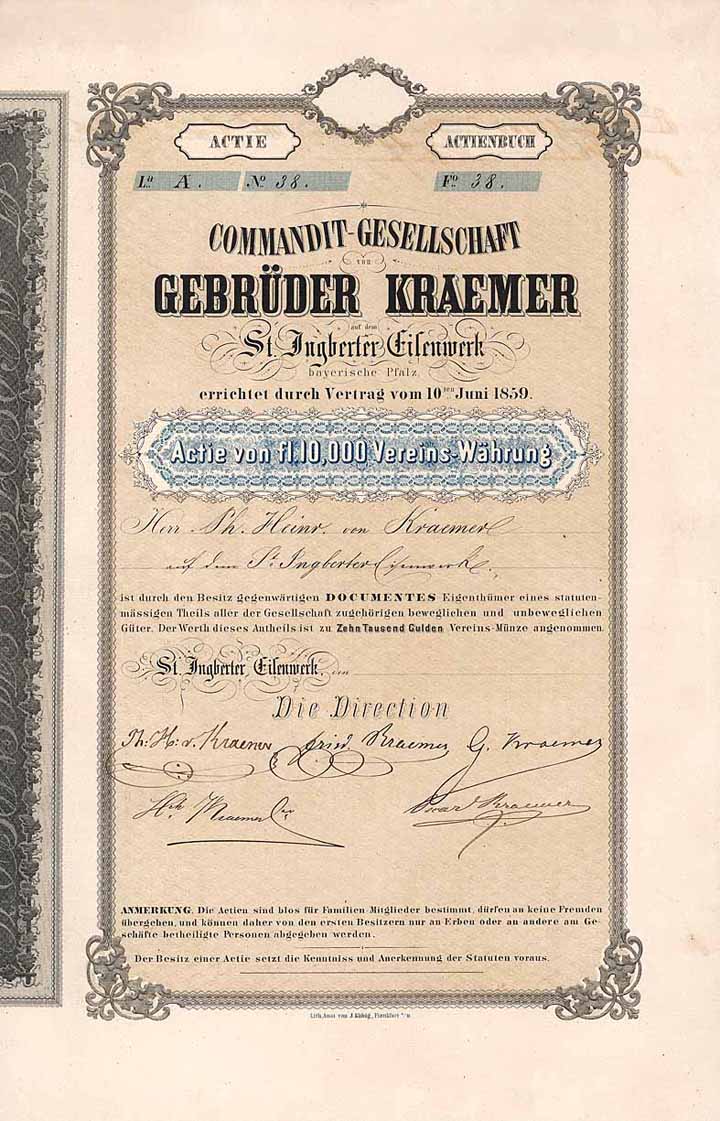 ACTIE
ACTIENBUCH
La A. No 38.
Fo 38.
COMMANDIT-GESELLSCHAFT
von
GEBRÜDER KRAEMER
auf dem
St. Ingberter Eisenwerk
bayerische Pfalz
errichtet durch Vertrag vom 10ten Juni 1859.
Actie von fl. 10,000 Vereins-Währung
Herr Ph. Heinr. von Kraemer
auf dem St. Ingberter Eisenwerke.
ist durch den Besitz gegenwärtigen DOCUMENTES Eigenthümer eines statuten-
mässigen Theils aller der Gesellschaft zugehörigen beweglichen und unbeweglichen
Güter. Der Werth dieses Antheils ist zu Zehn Tausend Gulden Vereins-Münze angenommen.
St. Ingberter Eisenwerk, den
Die Direction
Ph. H. v. Kraemer Fried. Kraemer G. Kraemer
Hch Kraemer Oscar Kraemer
ANMERKUNG. Die Actien sind blos für Familien-Mitglieder bestimmt, dürfen an keine Fremden
übergehen, und können daher von den ersten Besitzern nur an Erben oder an andere am Ge-
schäfte betheiligte Personen abgegeben werden.
Der Besitz einer Actie setzt die Kenntniss und Anerkennung der Statuten voraus.
Lith. Anst. von J. König, Frankfurt a/M